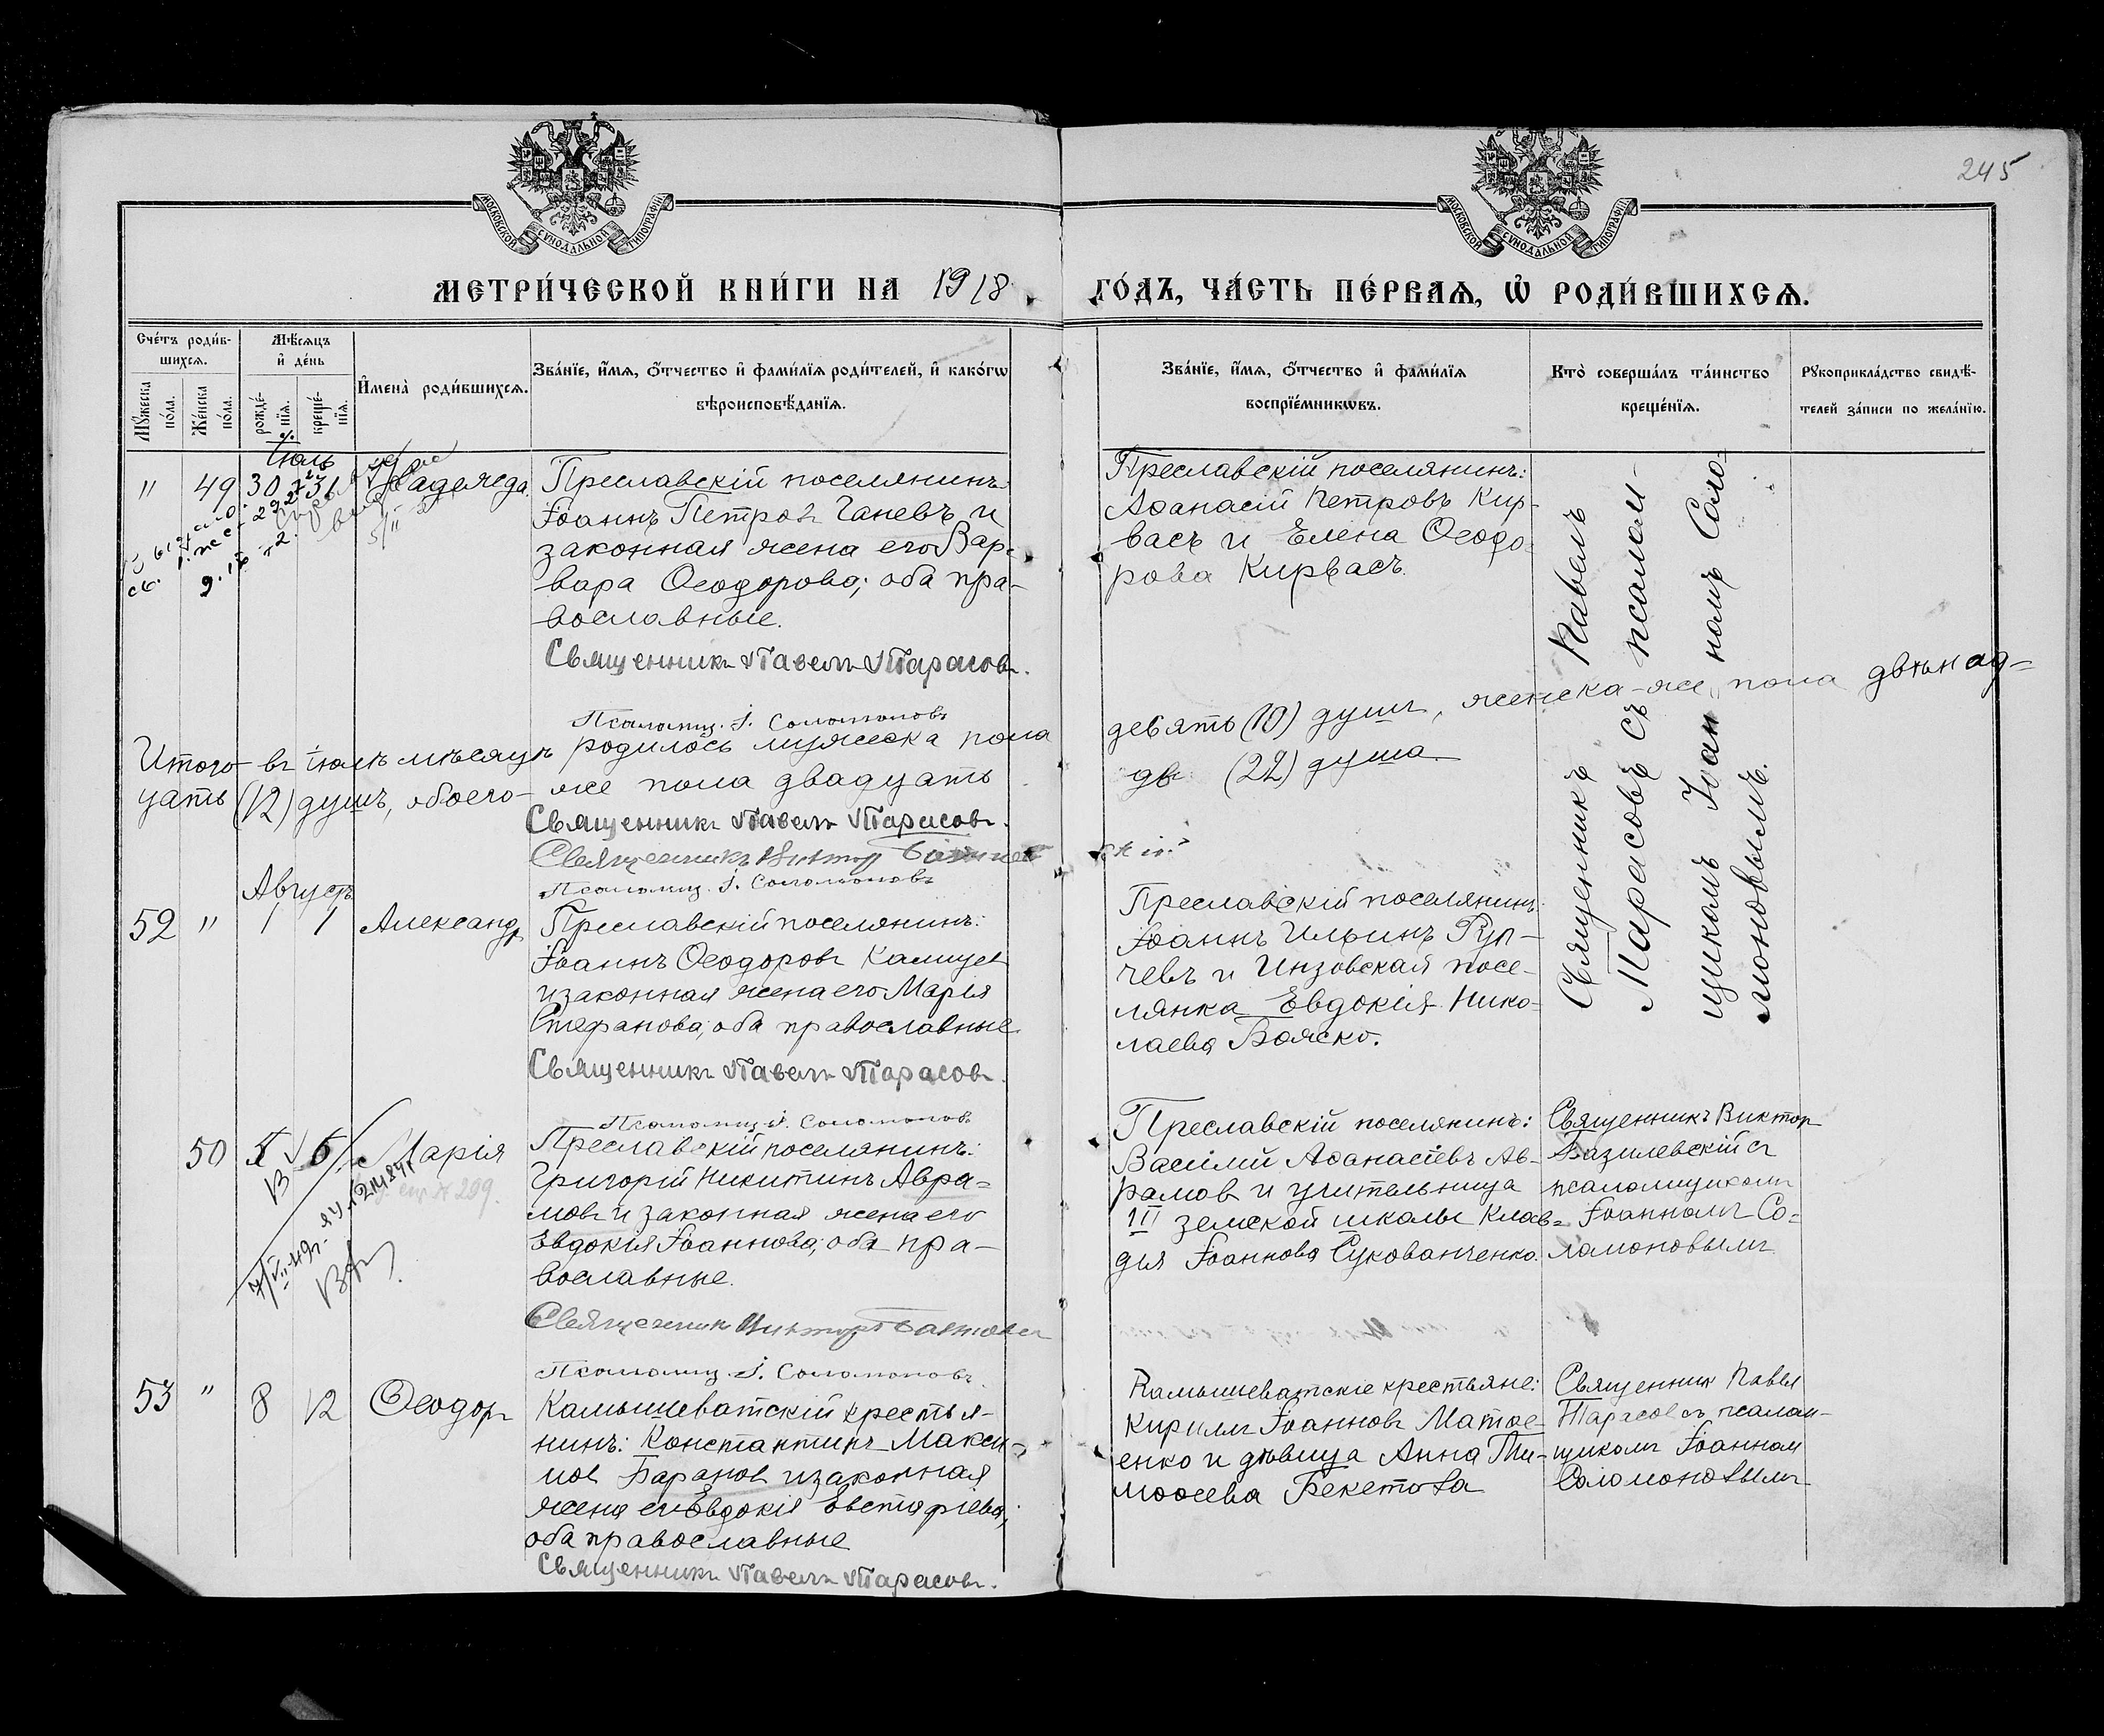 245
МОСКОВСКОЙ СУНОДАЛЬНОЙ ТИПОГРАФІИ
МОСКОВСКОЙ СУНОДАЛЬНОЙ ТИПОГРАФІИ
МЕТРИ́ЧЕСКОЙ КНИ́ГИ НА 1918
ГО́ДЪ, ЧА́СТЬ ПЕ́РВАѦ, Ѡ РОДИ́ВШИХСѦ.
Сче́тъ роди́в-
шихсѧ.
Мꙋ́жеска
по́ла.
Же́нска
по́ла.
Мѣ́сѧцъ
и де́нь
рожде́-
нїѧ.
креще́-
нїѧ.
Имена̀ роди́вшихсѧ.
Зва́нїе, и́мѧ, о́тчество и фами́лїѧ роди́телей, и како́гѡ
вѣроисповѣ́данїѧ.
Зва́нїе, и́мѧ, о́тчество и фами́лїѧ
воспрїе́мникѡвъ.
Кто̀ соверша́лъ та́инство
креще́нїѧ.
Рꙋкоприкла́дство свидѣ́-
телей за́писи по жела́нїю.
Іюль
" 49 30 31 Надежда
Преславскій поселянинъ:
Іоаннъ Петров Ганевъ и
законная жена его Вар-
вара Ѳеодорова; оба пра-
вославные.
Священникъ Павелъ Тарасовъ.
Псаломщ. І. Соломоновъ
Преславскій поселянинъ:
Аѳанасій Петровъ Кир-
васъ и Елена Ѳеодо-
рова Кирвасъ.
Священникъ Павелъ
Тарасовъ съ псалом-
щикомъ Іоанномъ Соло-
моновымъ.
Итого въ іюлѣ мѣсяцѣ родилось мужеска пола
девять (10) душъ, женска-же пола двѣнад-
цать (12) душъ, обоего-же пола двадцать
двѣ (22) душа.
Священникъ Павелъ Тарасовъ.
Священникъ Виктор
Псаломщ. І. Соломоновъ
Августъ
52 " 1 1 Александр
Преславскій поселянинъ:
Іоаннъ Ѳеодоровъ Калицев
и законная жена его Марья
Стефанова; оба православные
Священникъ Павелъ Тарасовъ.
Псаломщ. І. Соломонов
Преславскій поселянинъ:
Іоаннъ Ильинъ Руп-
чевъ и Инзовская посе-
лянка Евдокія Нико-
лаева Вояско.
50 5 6 Марія
Преславскій поселянинъ:
Григорій Никитинъ Авра-
мовъ и законная жена его
Евдокія Іоаннова; оба пра-
вославные.
Священник Виктор
Псаломщ. І. Соломоновъ.
Преславскій поселянинъ:
Василій Аѳанасіевъ Ав-
рамов и учительница
III земской школы Клав-
дія Іоаннова Сукованченко.
Священникъ Виктор
Базилевскій съ
псаломщикомъ
Іоанномъ Со-
ломоновымъ
53 " 8 12 Ѳеодоръ
Камышеватскій крестья-
нинъ: Константинъ Макси-
мов Баранов и законная
жена его Евдокія Евстафіева;
оба православные
Священникъ Павелъ Тарасовъ.
Камышеватскіе крестьяне:
Кириллъ Іоанновъ Матве-
енко и дѣвица Анна Ти-
моѳеева Бекетова
Священник Павел
Тарасов съ псалом-
щикомъ Іоанном
Соломоновымъ